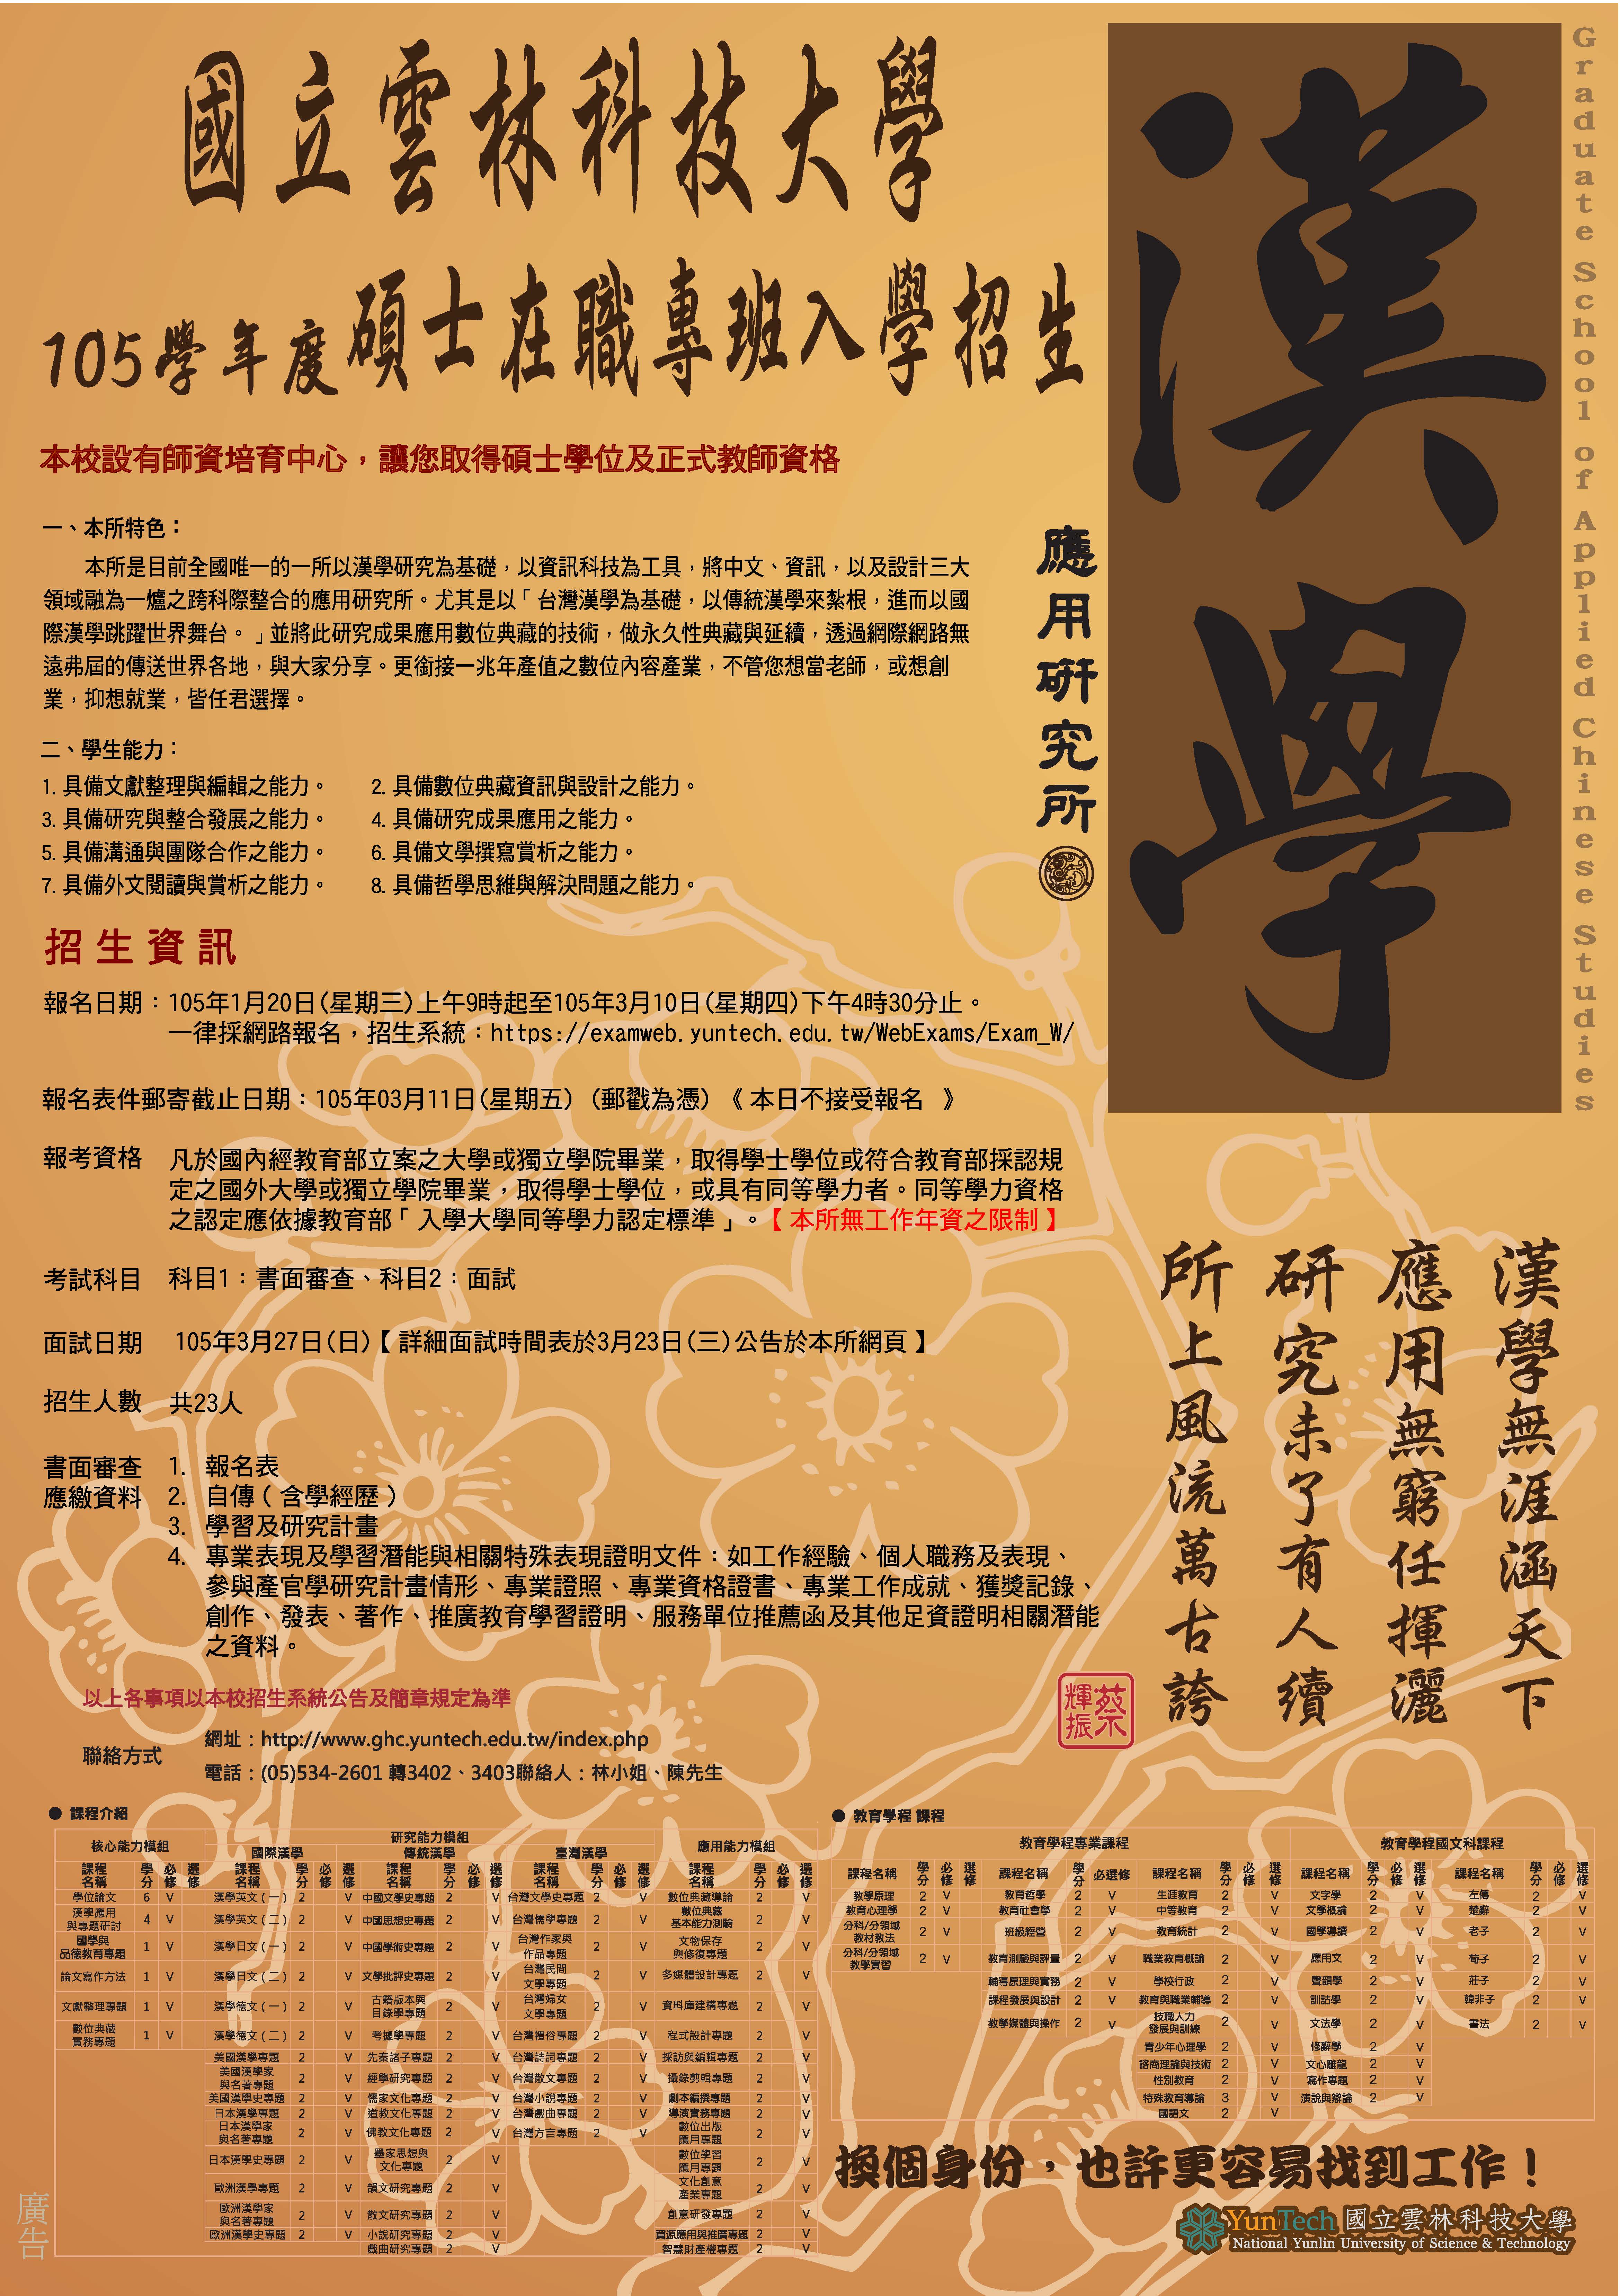 國立雲林科技大學
105學年度碩士在職專班入學招生
漢學
應用研究所
Graduate School of Applied Chinese Studies
本校設有師資培育中心，讓您取得碩士學位及正式教師資格
一、本所特色：
本所是目前全國唯一的一所以漢學研究為基礎，以資訊科技為工具，將中文、資訊，以及設計三大
領域融為一爐之跨科際整合的應用研究所。尤其是以「台灣漢學為基礎，以傳統漢學來紮根，進而以國
際漢學跳躍世界舞台。」並將此研究成果應用數位典藏的技術，做永久性典藏與延續，透過網際網路無
遠弗屆的傳送世界各地，與大家分享。更銜接一兆年產值之數位內容產業，不管您想當老師，或想創
業，抑想就業，皆任君選擇。
二、學生能力：
1. 具備文獻整理與編輯之能力。 2. 具備數位典藏資訊與設計之能力。
3. 具備研究與整合發展之能力。 4. 具備研究成果應用之能力。
5. 具備溝通與團隊合作之能力。 6. 具備文學撰寫賞析之能力。
7. 具備外文閱讀與賞析之能力。 8. 具備哲學思維與解決問題之能力。
招生資訊
報名日期：105年1月20日(星期三)上午9時起至105年3月10日(星期四)下午4時30分止。
一律採網路報名，招生系統：https://examweb.yuntech.edu.tw/WebExams/Exam_W/
報名表件郵寄截止日期：105年03月11日(星期五) (郵戳為憑) 《 本日不接受報名 》
報考資格 凡於國內經教育部立案之大學或獨立學院畢業，取得學士學位或符合教育部採認規
定之國外大學或獨立學院畢業，取得學士學位，或具有同等學力者。同等學力資格
之認定應依據教育部「入學大學同等學力認定標準」。【本所無工作年資之限制】
考試科目 科目1：書面審查、科目2：面試
面試日期 105年3月27日(日)【詳細面試時間表於3月23日(三)公告於本所網頁】
招生人數 共23人
書面審查 1. 報名表
應繳資料 2. 自傳(含學經歷)
3. 學習及研究計畫
4. 專業表現及學習潛能與相關特殊表現證明文件：如工作經驗、個人職務及表現、
參與產官學研究計畫情形、專業證照、專業資格證書、專業工作成就、獲獎記錄、
創作、發表、著作、推廣教育學習證明、服務單位推薦函及其他足資證明相關潛能
之資料。
漢學無涯涵天下
應用無窮任揮灑
研究未了有人續
所上風流萬古誇
蔡輝振
以上各事項以本校招生系統公告及簡章規定為準
聯絡方式
網址：http://www.ghc.yuntech.edu.tw/index.php
電話：(05)534-2601 轉3402、3403聯絡人：林小姐、陳先生
● 課程介紹
核心能力模組 研究能力模組 應用能力模組
國際漢學 傳統漢學 臺灣漢學
課程名稱 學分 必修 選修 課程名稱 學分 必修 選修 課程名稱 學分 必修 選修 課程名稱 學分 必修 選修 課程名稱 學分 必修 選修
學位論文 6 V 漢學英文(一) 2 V 中國文學史專題 2 V 台灣文學史專題 2 V 數位典藏導論 2 V
漢學應用與專題研討 4 V 漢學英文(二) 2 V 中國思想史專題 2 V 台灣儒學專題 2 V 數位典藏基本能力測驗 2 V
國學與品德教育專題 1 V 漢學日文(一) 2 V 中國學術史專題 2 V 台灣作家與作品專題 2 V 文物保存與修復專題 2 V
論文寫作方法 1 V 漢學日文(二) 2 V 文學批評史專題 2 V 台灣民間文學專題 2 V 多媒體設計專題 2 V
文獻整理專題 1 V 漢學德文(一) 2 V 古籍版本與目錄學專題 2 V 台灣婦女文學專題 2 V 資料庫建構專題 2 V
數位典藏實務專題 1 V 漢學德文(二) 2 V 考據學專題 2 V 台灣禮俗專題 2 V 程式設計專題 2 V
美國漢學專題 2 V 先秦諸子專題 2 V 台灣詩詞專題 2 V 採訪與編輯專題 2 V
美國漢學家與名著專題 2 V 經學研究專題 2 V 台灣散文專題 2 V 攝錄剪輯專題 2 V
美國漢學史專題 2 V 儒家文化專題 2 V 台灣小說專題 2 V 劇本編撰專題 2 V
日本漢學專題 2 V 道教文化專題 2 V 台灣戲曲專題 2 V 導演實務專題 2 V
日本漢學家與名著專題 2 V 佛教文化專題 2 V 台灣方言專題 2 V 數位出版應用專題 2 V
日本漢學史專題 2 V 墨家思想與文化專題 2 V 數位學習應用專題 2 V
歐洲漢學專題 2 V 韻文研究專題 2 V 文化創意產業專題 2 V
歐洲漢學家與名著專題 2 V 散文研究專題 2 V 創意研發專題 2 V
歐洲漢學史專題 2 V 小說研究專題 2 V 資源應用與推廣專題 2 V
戲曲研究專題 2 V 智慧財產權專題 2 V
● 教育學程 課程
教育學程專業課程 教育學程國文科課程
課程名稱 學分 必修 選修 課程名稱 學分 必選修 課程名稱 學分 必修 選修 課程名稱 學分 必修 選修 課程名稱 學分 必修 選修
教學原理 2 V 教育哲學 2 V 生涯教育 2 V 文字學 2 V 左傳 2 V
教育心理學 2 V 教育社會學 2 V 中等教育 2 V 文學概論 2 V 楚辭 2 V
分科/分領域教材教法 2 V 班級經營 2 V 教育統計 2 V 國學導讀 2 V 老子 2 V
分科/分領域教學實習 2 V 教育測驗與評量 2 V 職業教育概論 2 V 應用文 2 V 荀子 2 V
輔導原理與實務 2 V 學校行政 2 V 聲韻學 2 V 莊子 2 V
課程發展與設計 2 V 教育與職業輔導 2 V 訓詁學 2 V 韓非子 2 V
教學媒體與操作 2 V 技職人力發展與訓練 2 V 文法學 2 V 書法 2 V
青少年心理學 2 V 修辭學 2 V
諮商理論與技術 2 V 文心雕龍 2 V
性別教育 2 V 寫作專題 2 V
特殊教育導論 3 V 演說與辯論 2 V
國語文 2 V
換個身份，也許更容易找到工作！
廣告
YunTech 國立雲林科技大學
National Yunlin University of Science & Technology